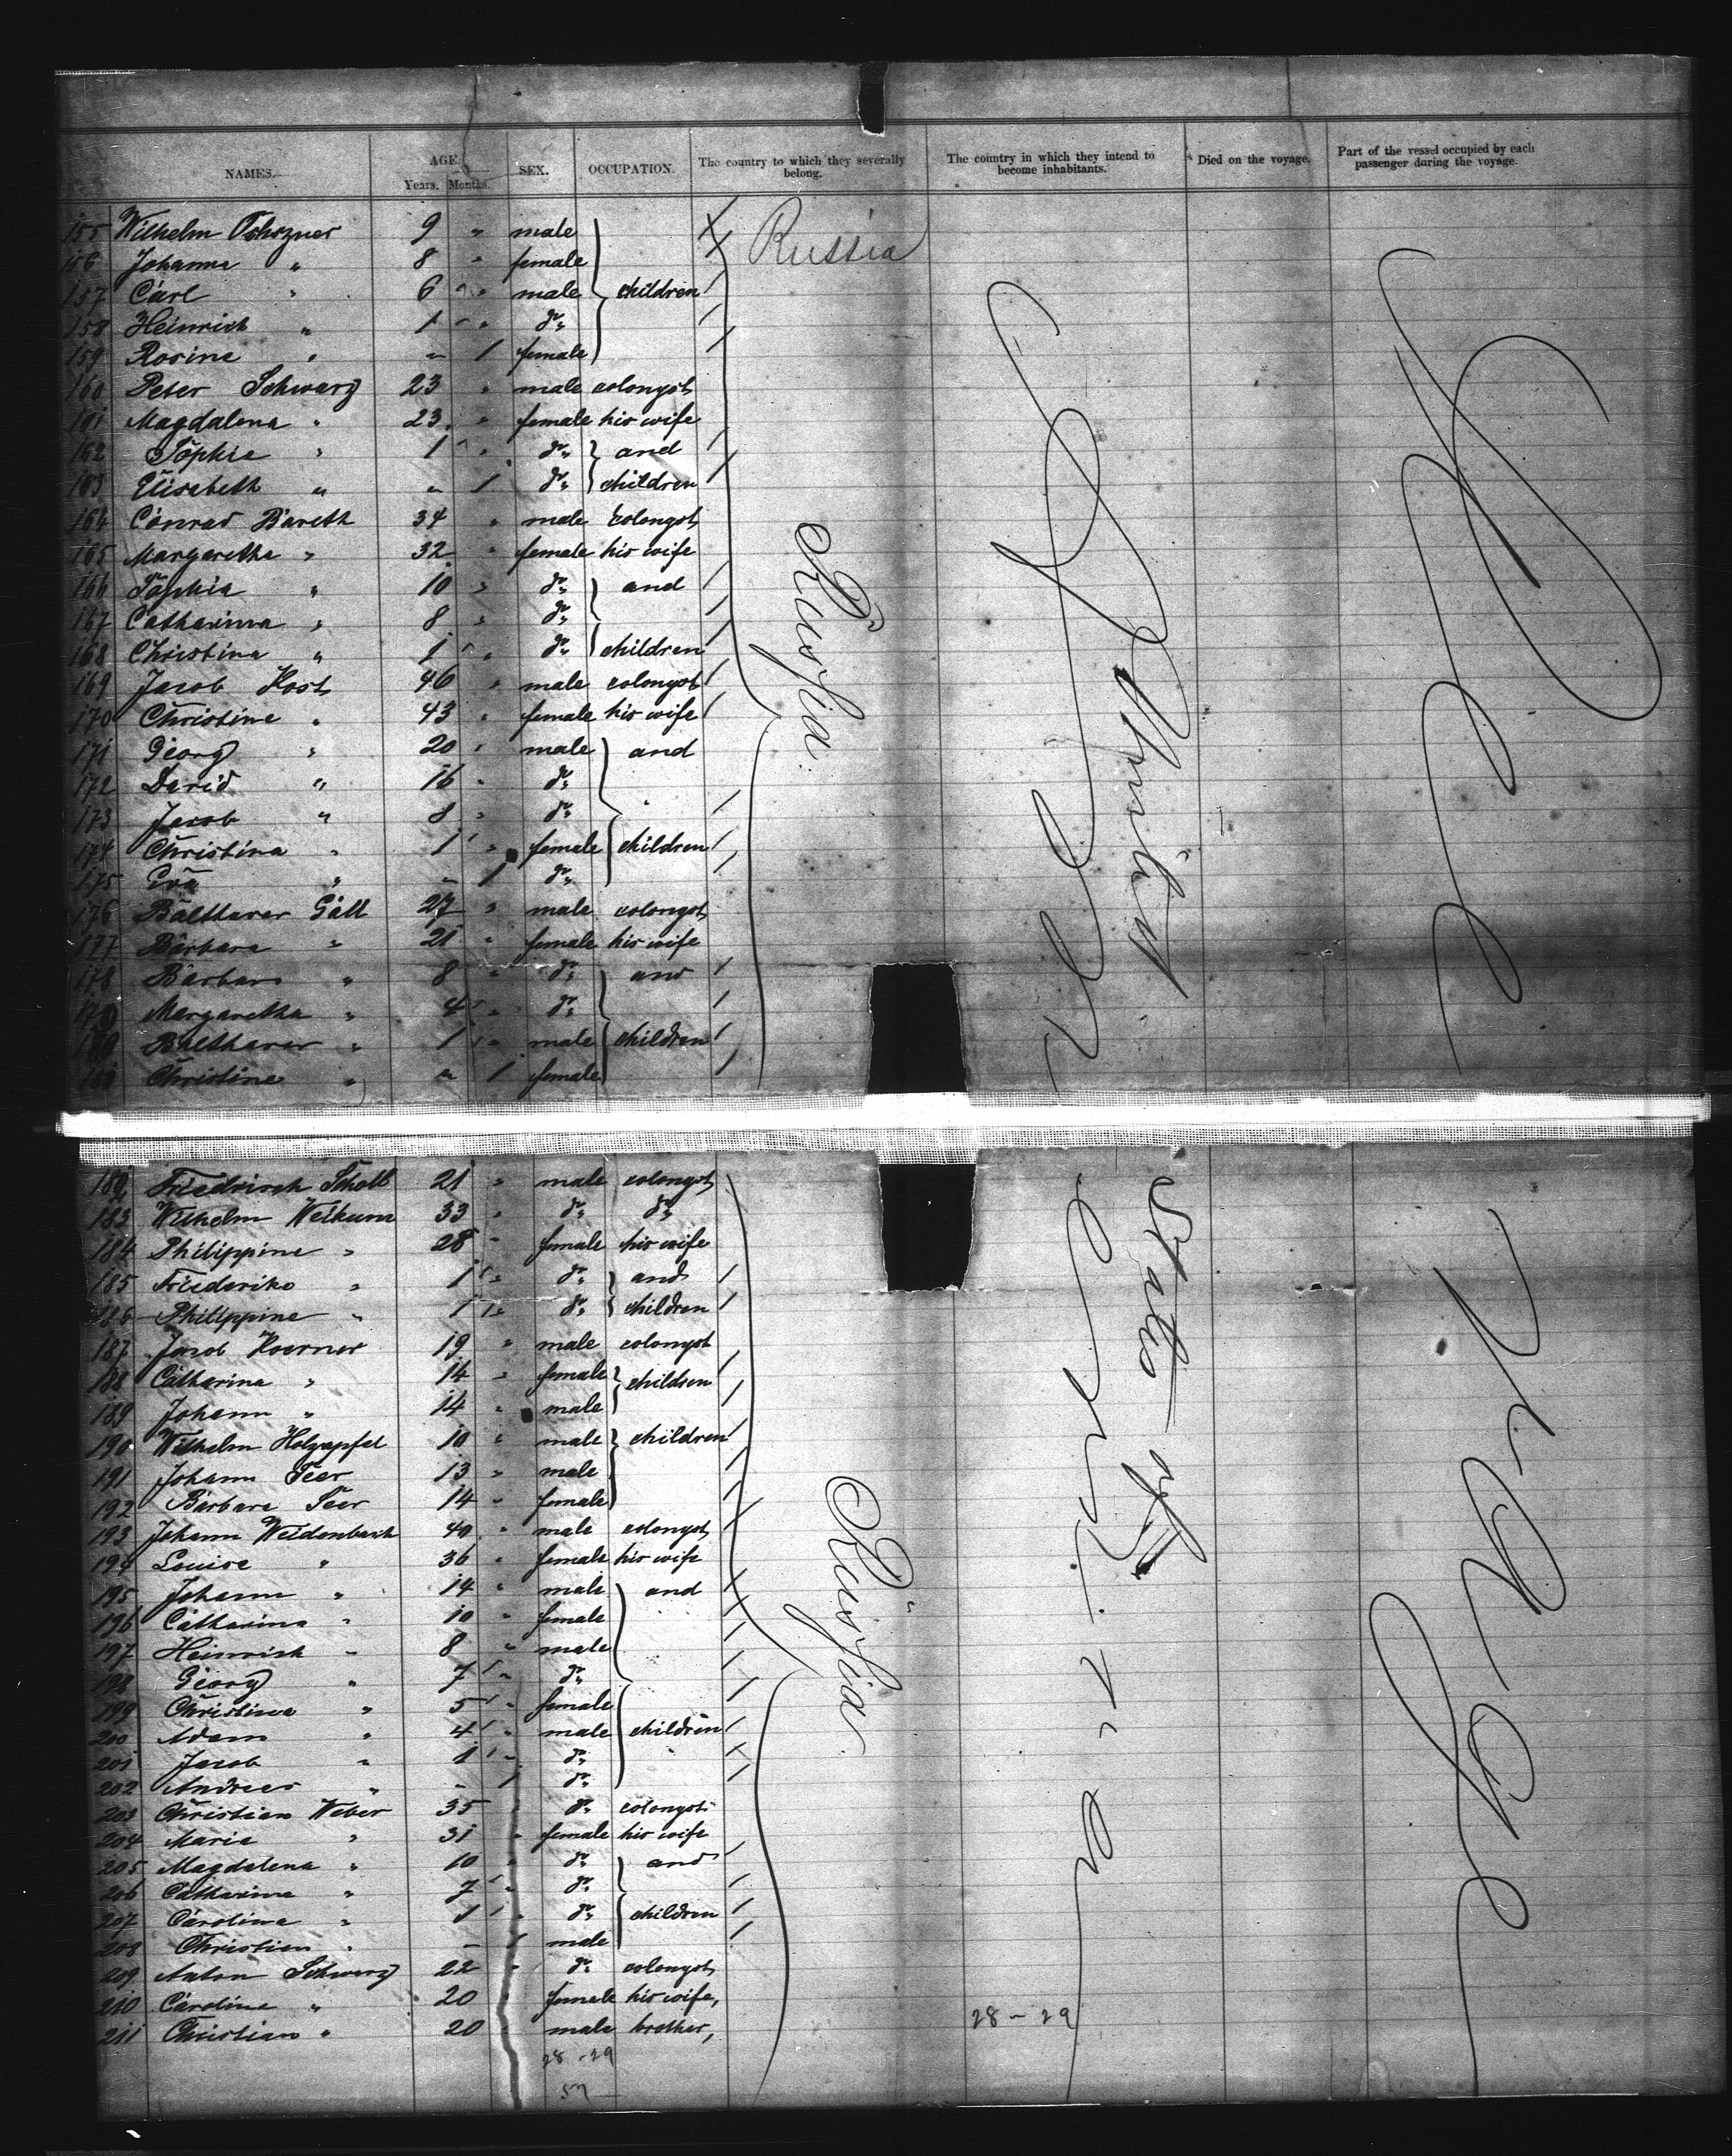 NAMES. AGE. SEX. OCCUPATION. The country to which they severally belong. The country in which they intend to become inhabitants. Died on the voyage. Part of the vessel occupied by each passenger during the voyage.
Years. Months.
155 Wilhelm 9 " male Russia
156 Johanna " 8 " female
157 Carl " 6 " male children
158 Heinrich " 1 " do
159 Rosine " " 1 female
160 Peter Schwarz 23 " male colonyst
161 Magdalena " 23 " female his wife
162 Sophie " 1 " do and
163 Elisabeth " " 1 do children
164 Conrad Bareth 34 " male colonyst
165 Margaretha " 32 " female his wife
166 Sophia " 10 " do and
167 Catharina " 8 " do
168 Christina " 1 " do children
169 Jacob Kost 46 " male colonyst
170 Christine " 43 " female his wife
171 Georg " 20 " male and
172 David " 16 " do
173 Jacob " 8 " do
174 Christina " 1 " female children
175 Eva " " 1 do
176 Balthaser Gall 27 " male colonyst
177 Barbara " 21 " female his wife
178 Barbara " 8 " do and
179 Margaretha " 4 " do
180 Balthaser " 1 " male children
181 Christine " " 1 female
Russia.
United
182 Friedrich Scholl 21 " male colonyst
183 Wilhelm Weikum 33 " do do
184 Philippine " 28 " female his wife
185 Friederike " 1 " do and
186 Philippine " 1 " do children
187 Jacob Koerner 19 " male colonyst
188 Catharina " 14 " female children
189 Johann " 14 " male
190 Wilhelm Holzapfel 10 " male children
191 Johann Seer 13 " male
192 Barbara Seer 14 " female
193 Johann Weidenbach 40 " male colonyst
194 Louise " 36 " female his wife
195 Johann " 14 " male and
196 Catharina " 10 " female
197 Heinrich " 8 " male
198 Georg " 7 " do
199 Christina " 5 " female
200 Adam " 4 " male children
201 Jacob " 1 " do
202 Andreas " " 1 do
203 Christian Weber 35 " do colonyst
204 Marie " 31 " female his wife
205 Magdalena " 10 " do and
206 Catharina " 7 " do
207 Carolina " 1 " do children
208 Christian " " 1 male
209 Anton Schwarz 22 " do colonyst
210 Carolina " 20 " female his wife,
211 Christian " 20 " male brother,
Russia
States of
28-29
28-29
57